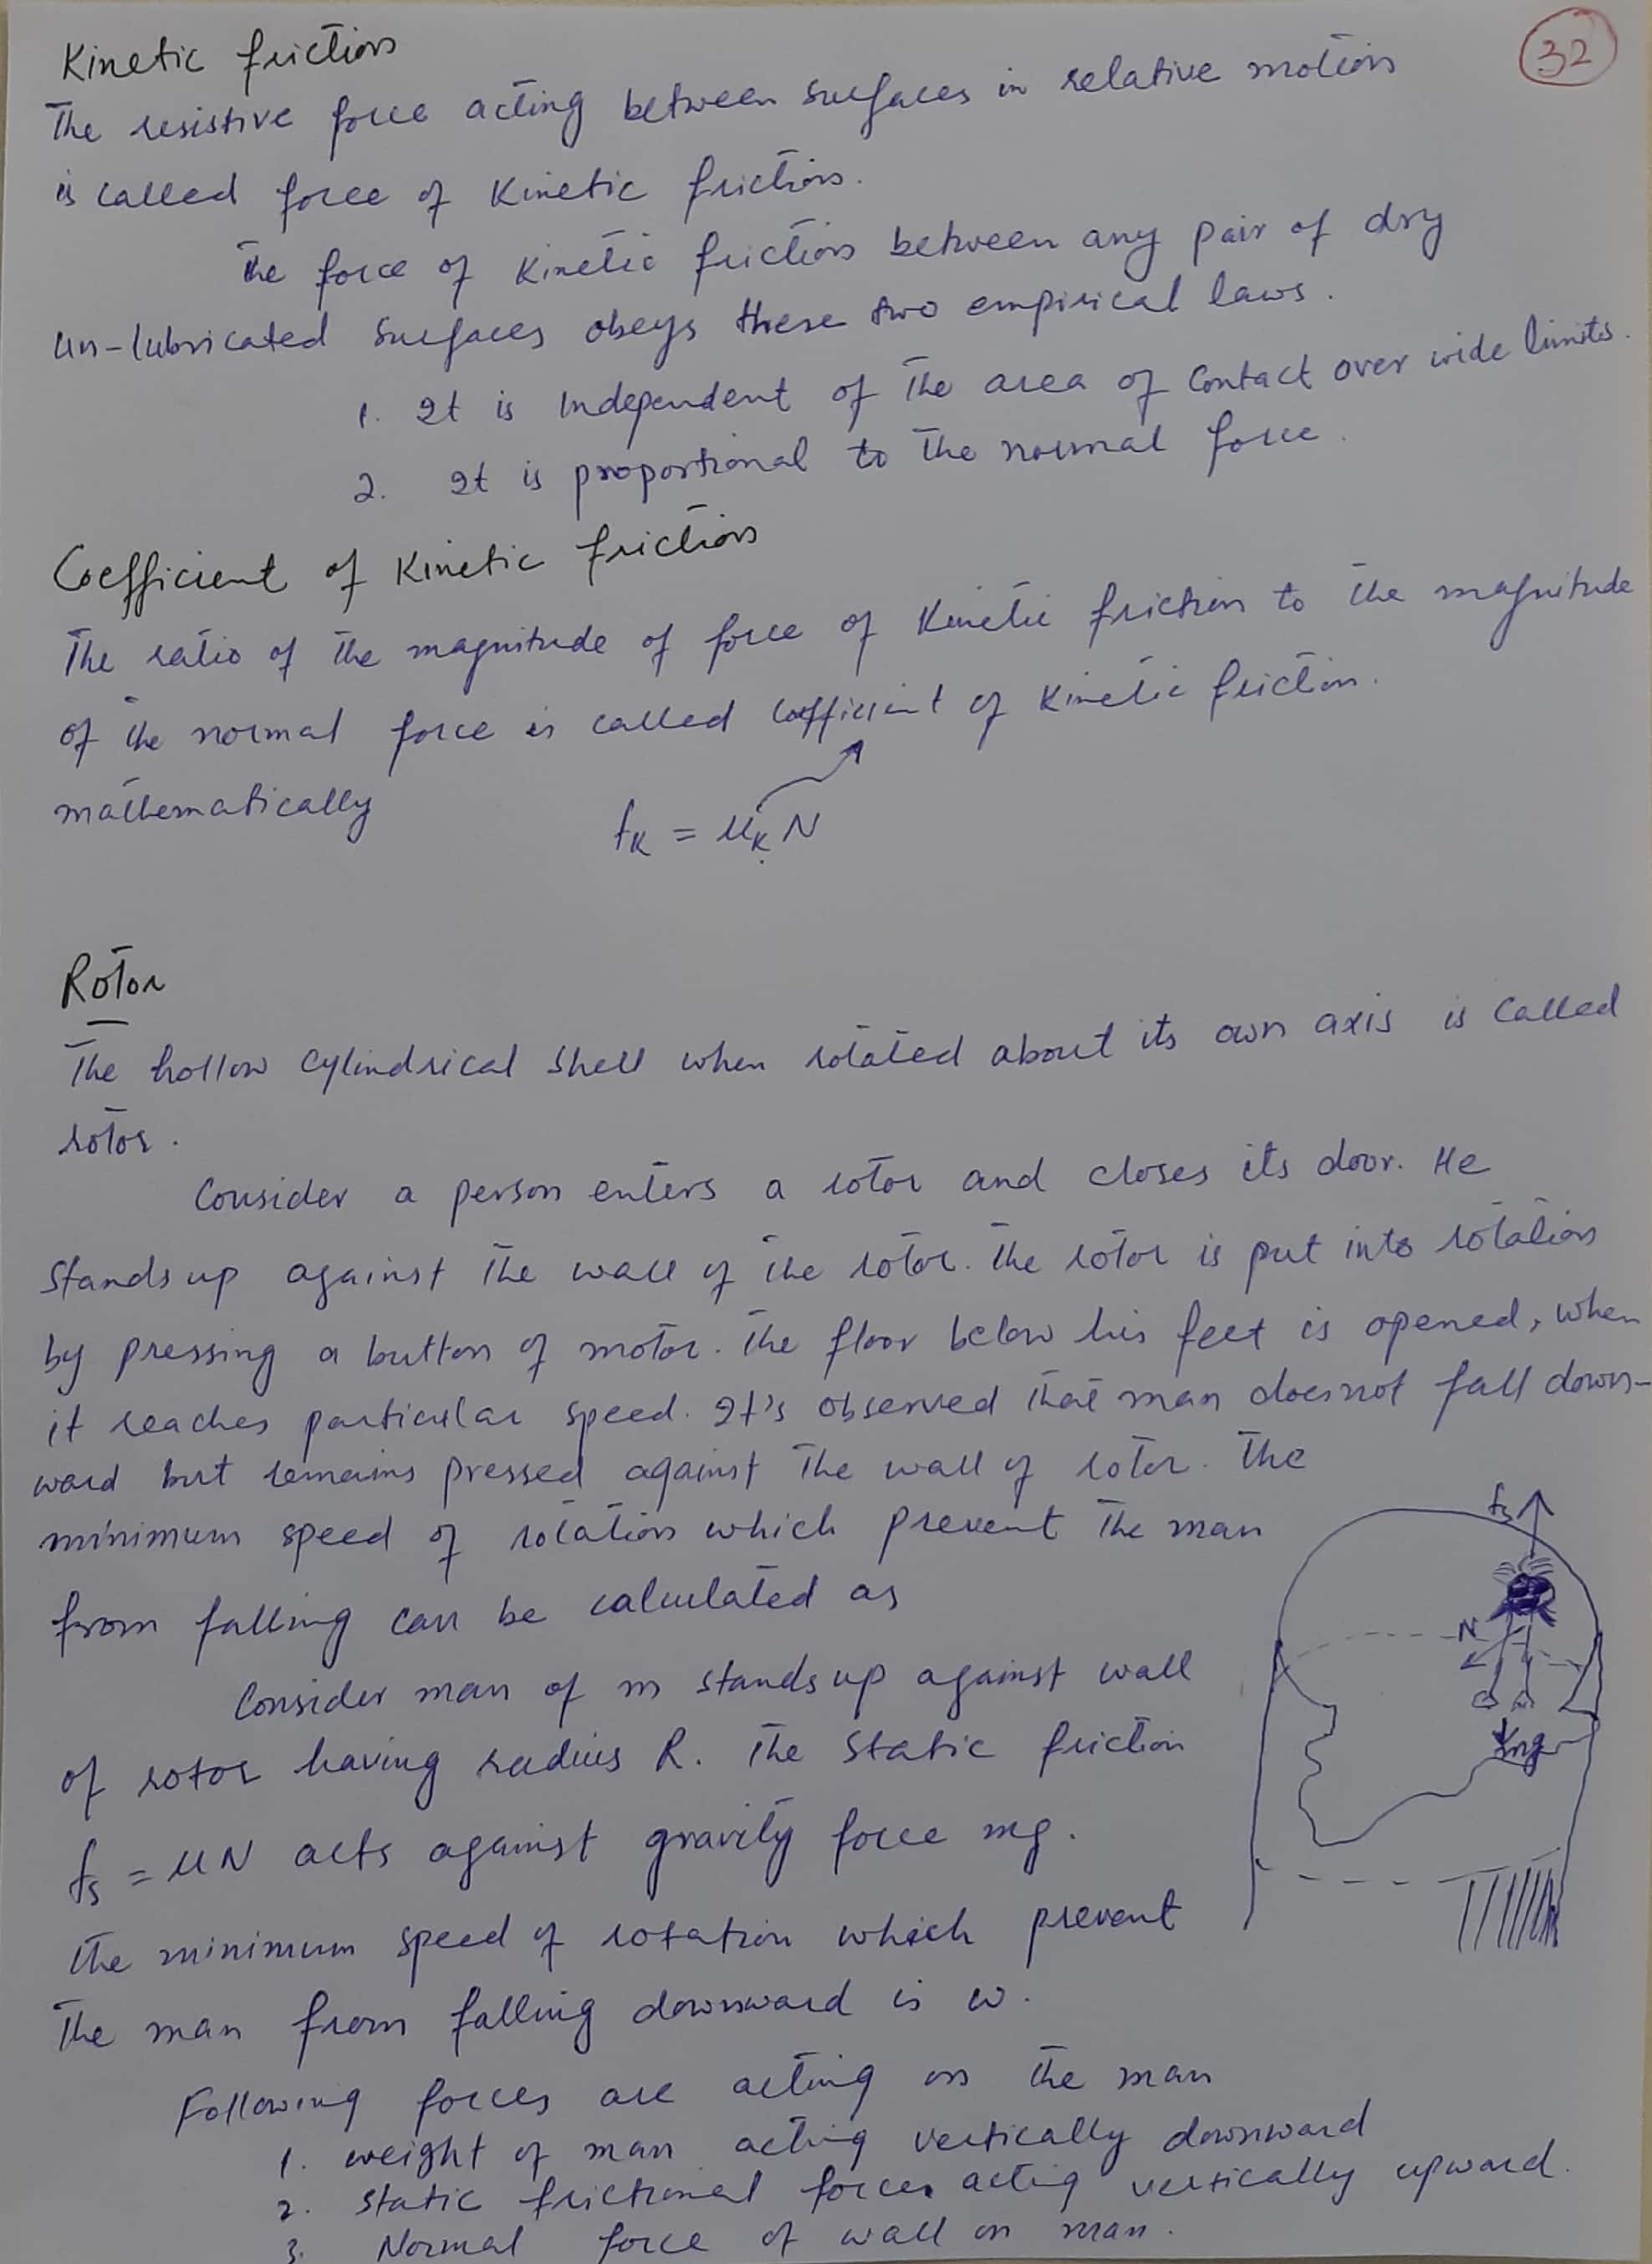 32
Kinetic friction
The resistive force acting between surfaces in relative motion
is called force of kinetic friction.
The force of kinetic friction between any pair of dry
un-lubricated surfaces obeys these two empirical laws.
1. It is independent of the area of contact over wide limits.
2. It is proportional to the normal force.
Coefficient of kinetic friction
The ratio of the magnitude of force of kinetic friction to the magnitude
of the normal force is called coefficient of kinetic friction.
mathematically
fK = μK N
Rotor
The hollow cylindrical shell when rotated about its own axis is called
rotor.
Consider a person enters a rotor and closes its door. He
stands up against the wall of the rotor. The rotor is put into rotation
by pressing a button of motor. The floor below his feet is opened, when
it reaches particular speed. It's observed that man does not fall down-
ward but remains pressed against the wall of rotor. The
minimum speed of rotation which prevent the man
from falling can be calculated as
Consider man of m stands up against wall
of rotor having radius R. The static friction
fs = μN acts against gravity force mg.
The minimum speed of rotation which prevent
the man from falling downward is ω.
Following forces are acting on the man
1. weight of man acting vertically downward
2. static frictional forces acting vertically upward.
3. Normal force of wall on man.
fs
N
mg